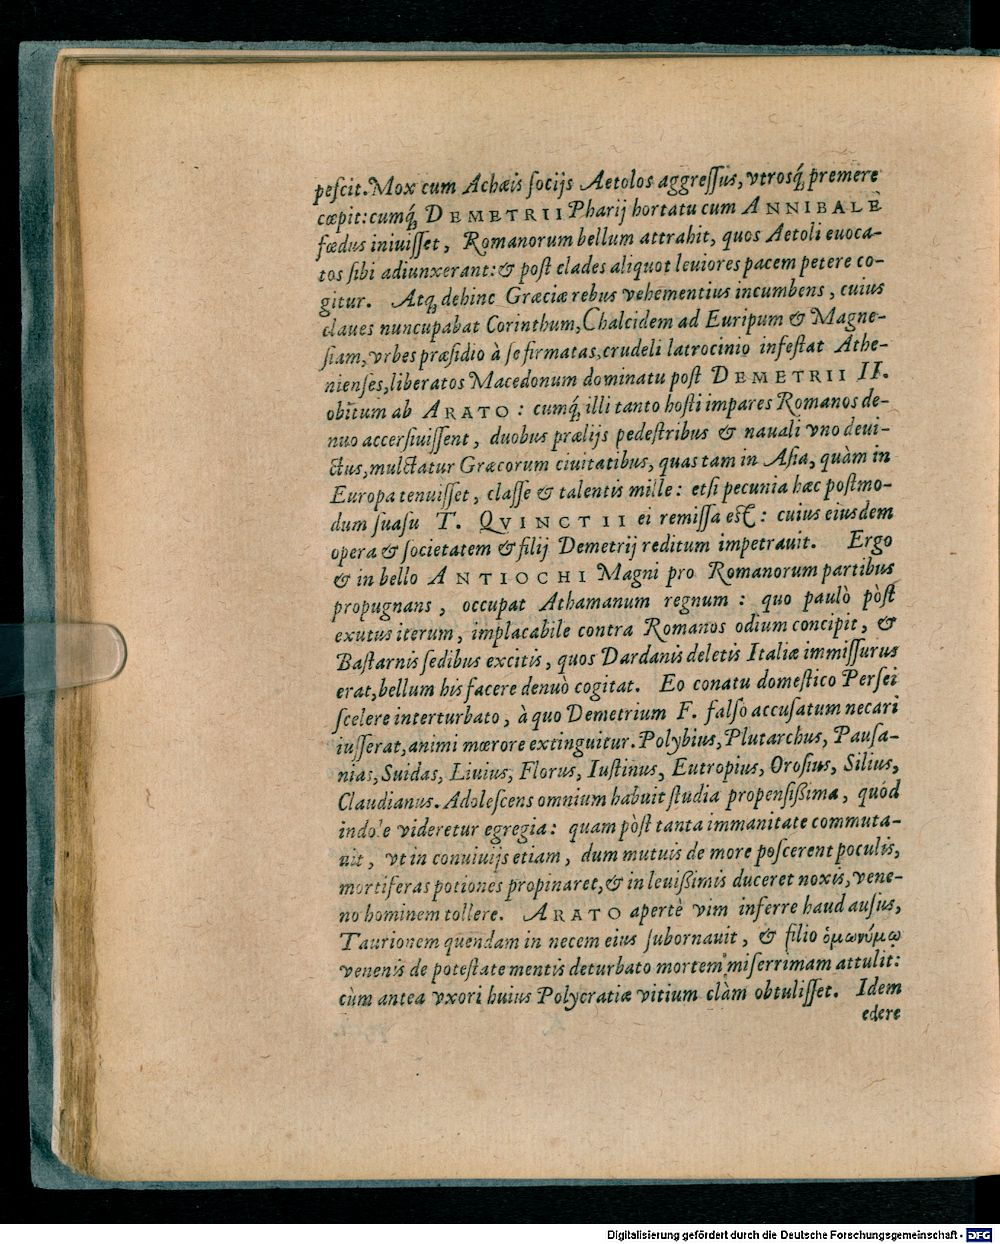 peſcit. Mox cum Achæis ſocijs Aetolos aggreſſus, vtrosq́; premere
cœpit: cumq́; DEMETRII Pharij hortatu cum ANNIBALE
fœdus iniuiſſet, Romanorum bellum attrahit, quos Aetoli euoca-
tos ſibi adiunxerant: & poſt clades aliquot leuiores pacem petere co-
gitur. Atq; dehinc Græciæ rebus vehementius incumbens, cuius
claues nuncupabat Corinthum, Chalcidem ad Euripum & Magne-
ſiam, vrbes præſidio à ſe firmatas, crudeli latrocinio infeſtat Athe-
nienſes, liberatos Macedonum dominatu poſt DEMETRII II.
obitum ab ARATO: cumq́; illi tanto hoſti impares Romanos de-
nuo accerſiuiſſent, duobus prælijs pedeſtribus & nauali vno deui-
ctus, mulctatur Græcorum ciuitatibus, quas tam in Aſia, quàm in
Europa tenuiſſet, claſſe & talentis mille: etſi pecunia hæc poſtmo-
dum ſuaſu T. QVINCTII ei remiſſa eſt: cuius eiusdem
opera & ſocietatem & filij Demetrij reditum impetrauit. Ergo
& in bello ANTIOCHI Magni pro Romanorum partibus
propugnans, occupat Athamanum regnum: quo paulò pòſt
exutus iterum, implacabile contra Romanos odium concipit, &
Baſtarnis ſedibus excitis, quos Dardanis deletis Italiæ immiſſurus
erat, bellum his facere denuò cogitat. Eo conatu domeſtico Perſei
ſcelere interturbato, à quo Demetrium F. falſò accuſatum necari
iuſſerat, animi mœrore extinguitur. Polybius, Plutarchus, Pauſa-
nias, Suidas, Liuius, Florus, Iuſtinus, Eutropius, Oroſius, Silius,
Claudianus. Adoleſcens omnium habuit ſtudia propenſißima, quód
indole videretur egregia: quam pòſt tanta immanitate commuta-
uit, vt in conuiuijs etiam, dum mutuis de more poſcerent poculis,
mortiferas potiones propinaret, & in leuißimis duceret noxis, vene-
no hominem tollere. ARATO apertè vim inferre haud auſus,
Taurionem quendam in necem eius ſubornauit, & filio ὁμωνύμω
venenis de poteſtate mentis deturbato mortem miſerrimam attulit:
cùm antea vxori huius Polycratiæ vitium clàm obtuliſſet. Idem
edere
Digitalisierung gefördert durch die Deutsche Forschungsgemeinschaft - DFG